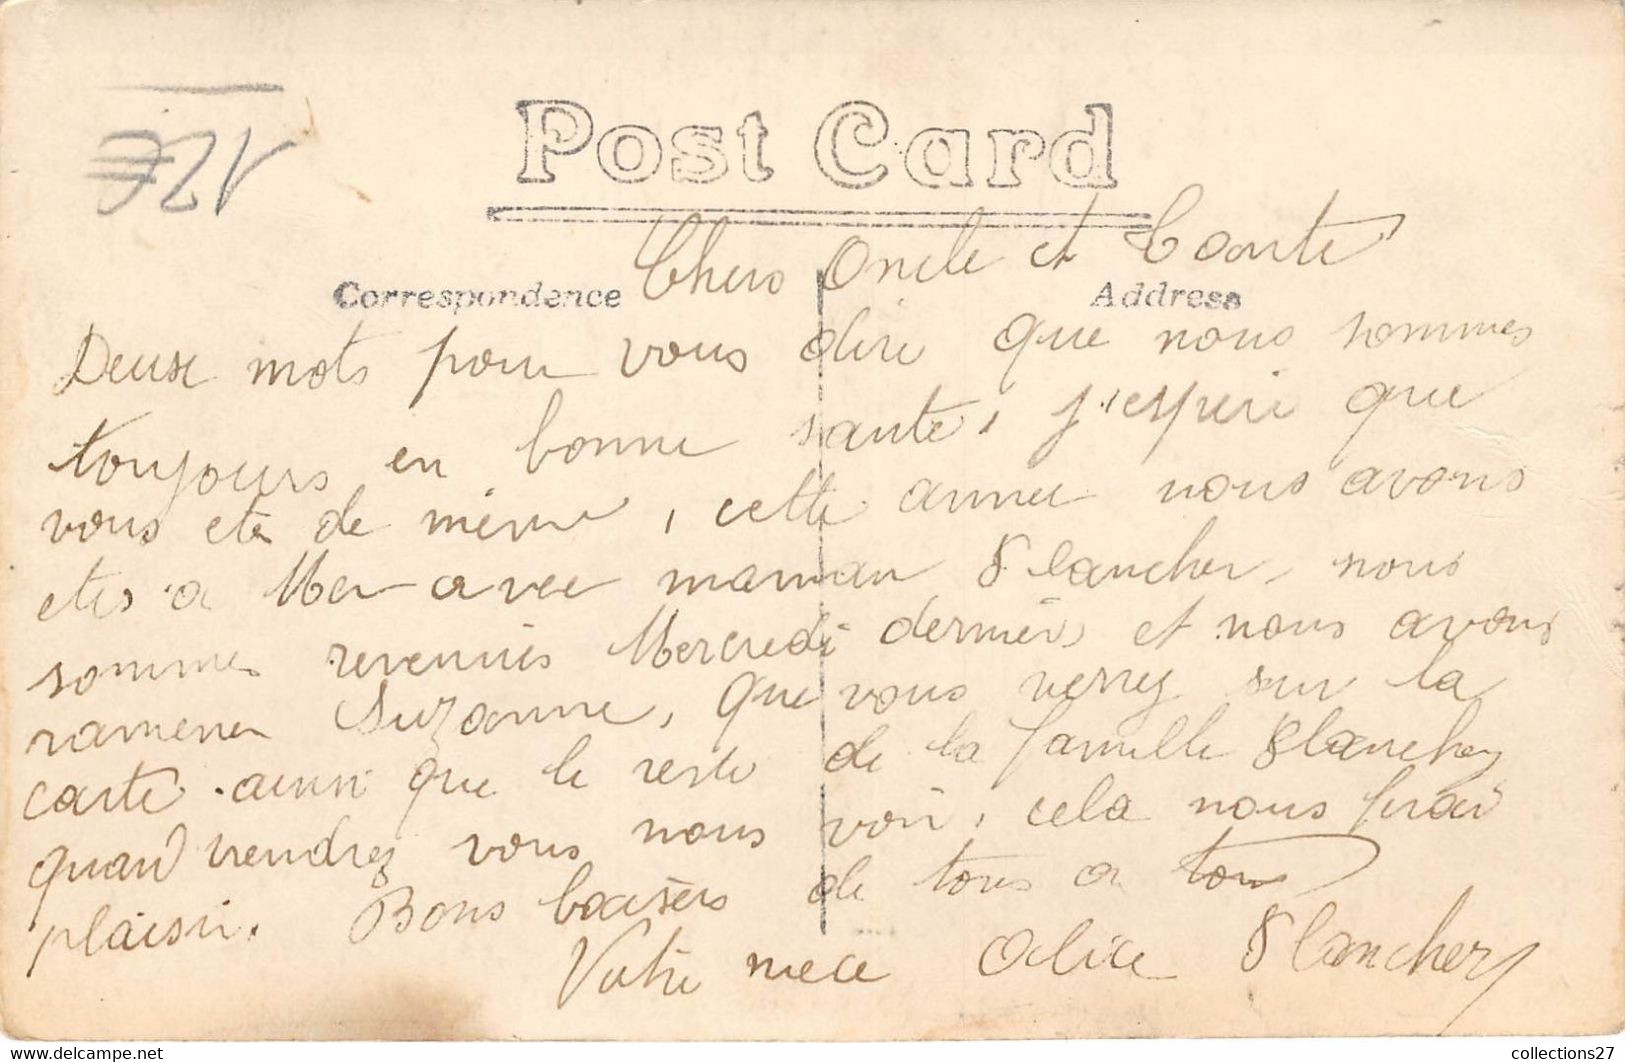 Post Card
Correspondence
Address
Chers Oncle et Tante
Deux mots pour vous dire que nous sommes
toujours en bonne santé, j'espère que
vous ete de même, cette annee nous avons
etes a Mer avec maman Blancher, nous
sommes revenues Mercredi dernier, et nous avons
ramener Suzanne, que vous verrez sur la
carte ainsi que le reste de la famille Blanchery
quand viendrez vous nous voir, cela nous ferai
plaisir. Bons baisers de tous a tous
Votre niece Alice Blanchery
collections27